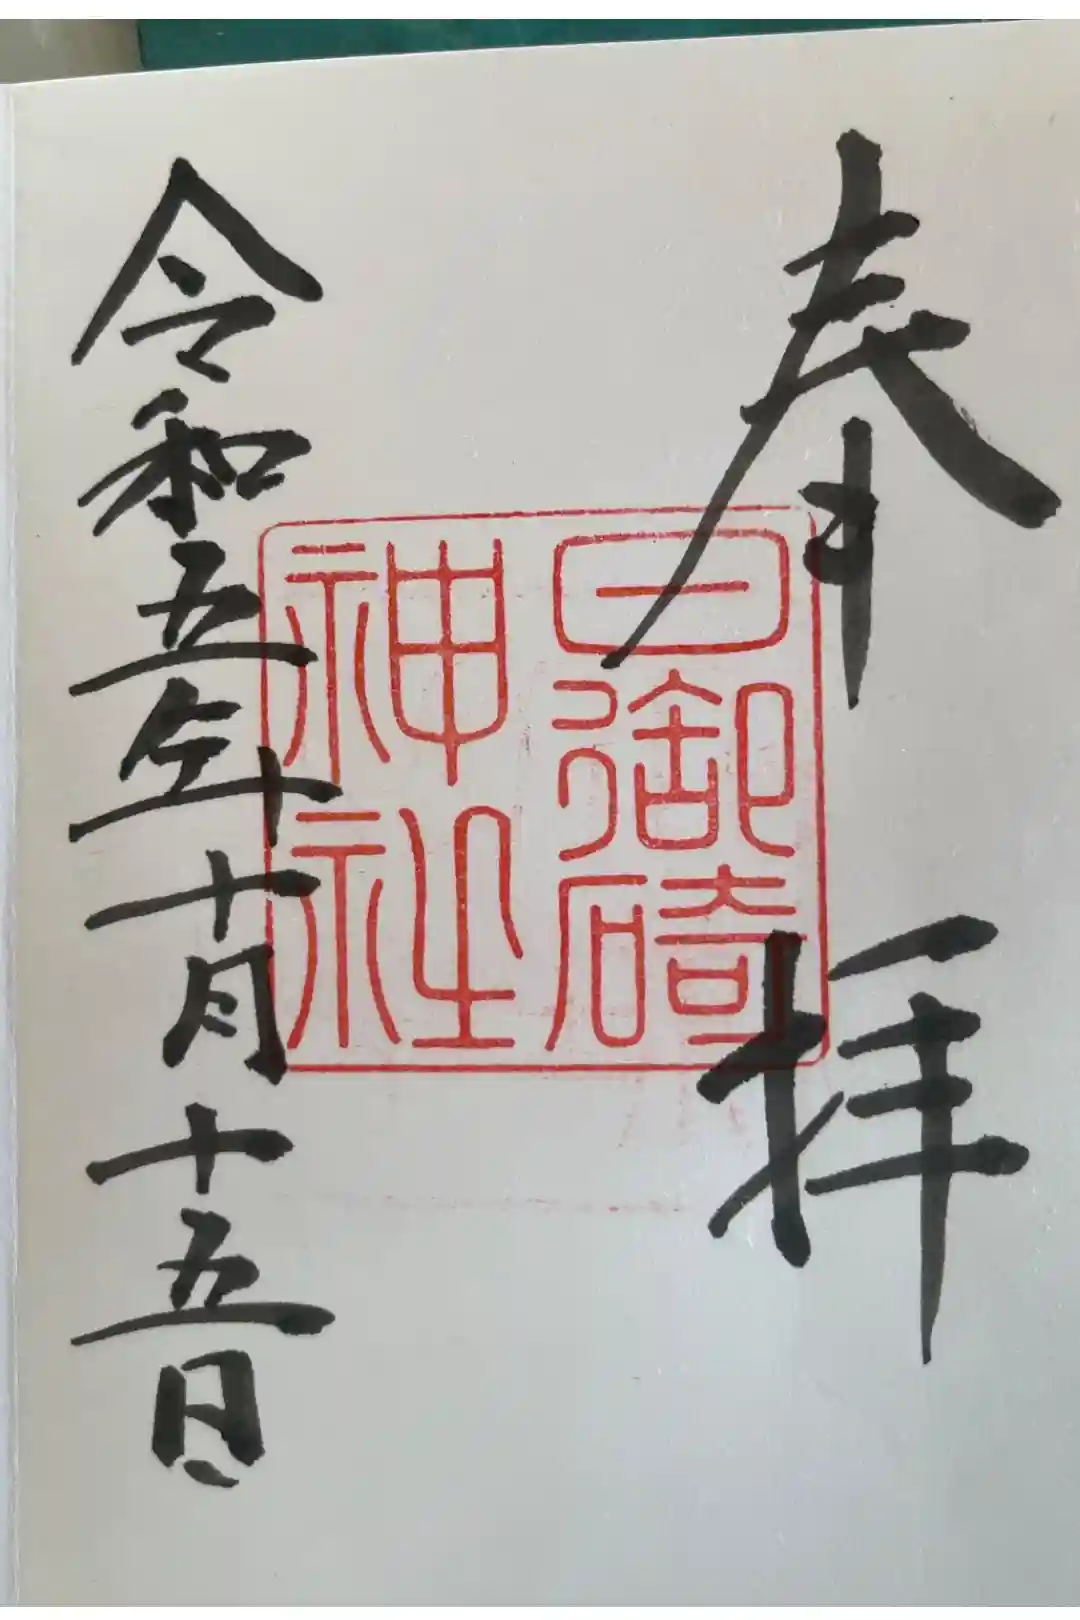 奉拝
日御碕
神社
令和五年十月十五日